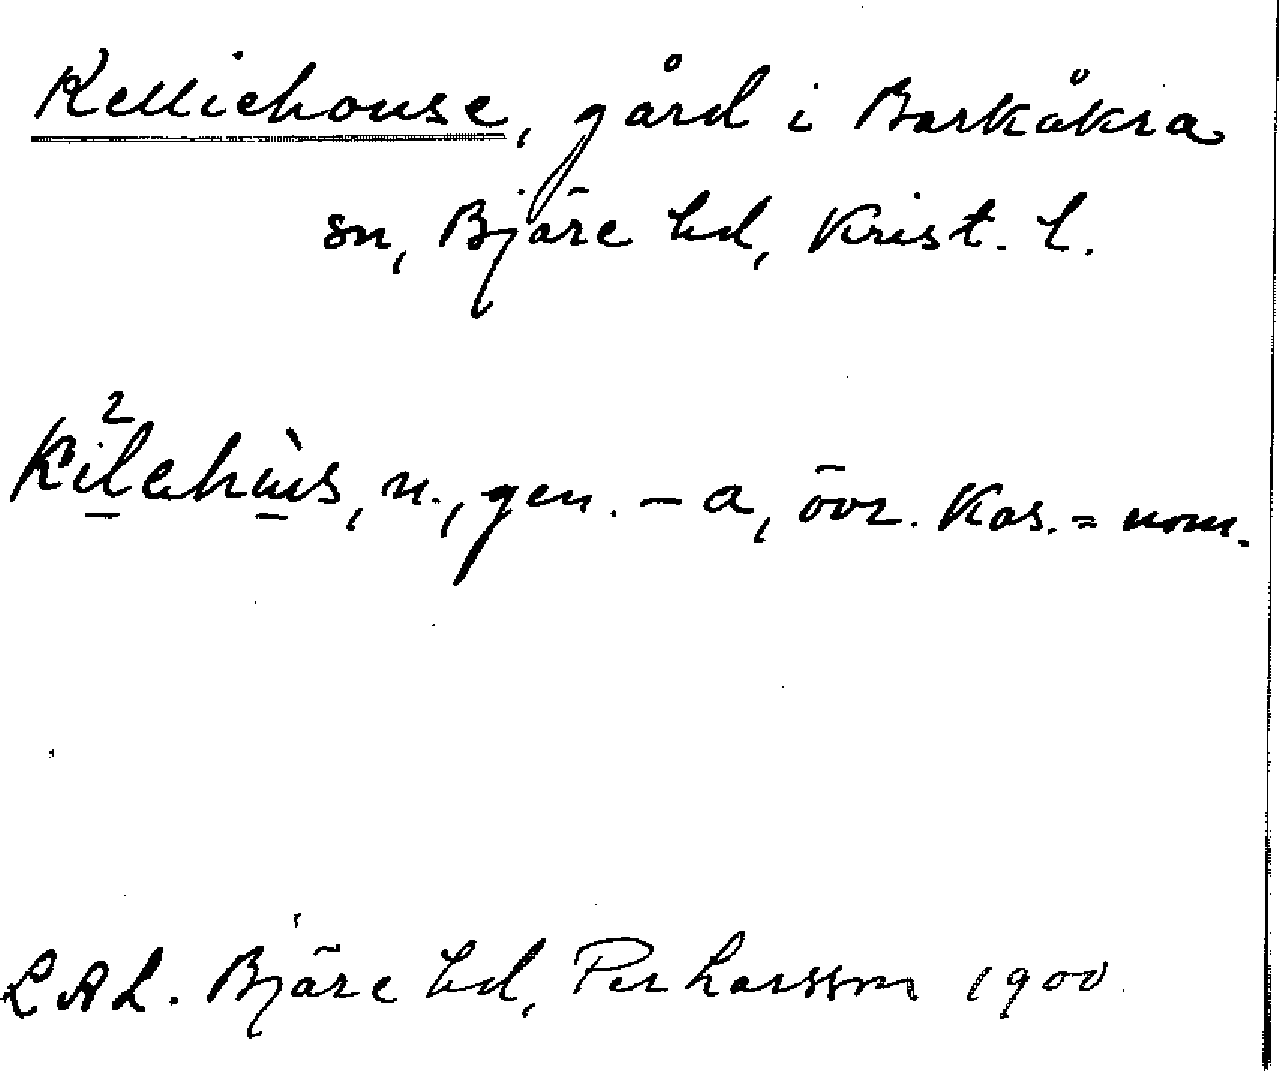 Kelliehouse, gård i Barkåkra
sn, Bjäre hd, Krist. l.
Ki²lehùs, n., gen. - a, övr. Kas. = nom.
LAL. Bjäre hd, Per Larsson 1900